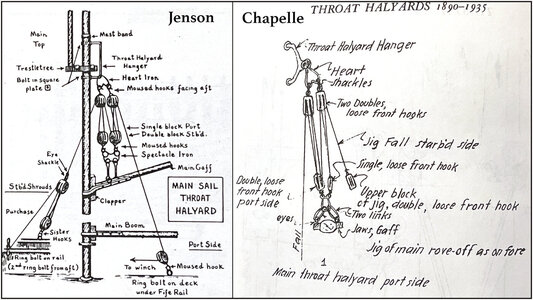 Jenson
Main
Top
Mast band
Throat Halyard
Hanger
Trestletree
Heart Iron
Bolt in square
plate
Moused hooks facing aft
Single block Port
Double block Stb'd.
Eye
Shackle
Moused hooks
Spectacle Iron
Stb'd Shrouds
Main Gaff
Purchase
Clapper
MAIN SAIL
THROAT
HALYARD
Sister
Hooks
Main Boom
Port Side
Ring bolt on rail
(2nd ring bolt from aft)
To winch
Moused hook
Ring bolt on deck
under Fife Rail
Chapelle
THROAT HALYARDS 1890-1935
Throat Halyard Hanger
Heart
Shackles
Two Doubles,
loose front hooks
Jig Fall starb'd side
Single, loose front hook
Double, loose
front hook
port side
Upper block
of jig, double, loose front hook
eyes
Two links
Jaws, Gaff
Fall
Jig of main rove-off as on fore
1
Main throat halyard port side